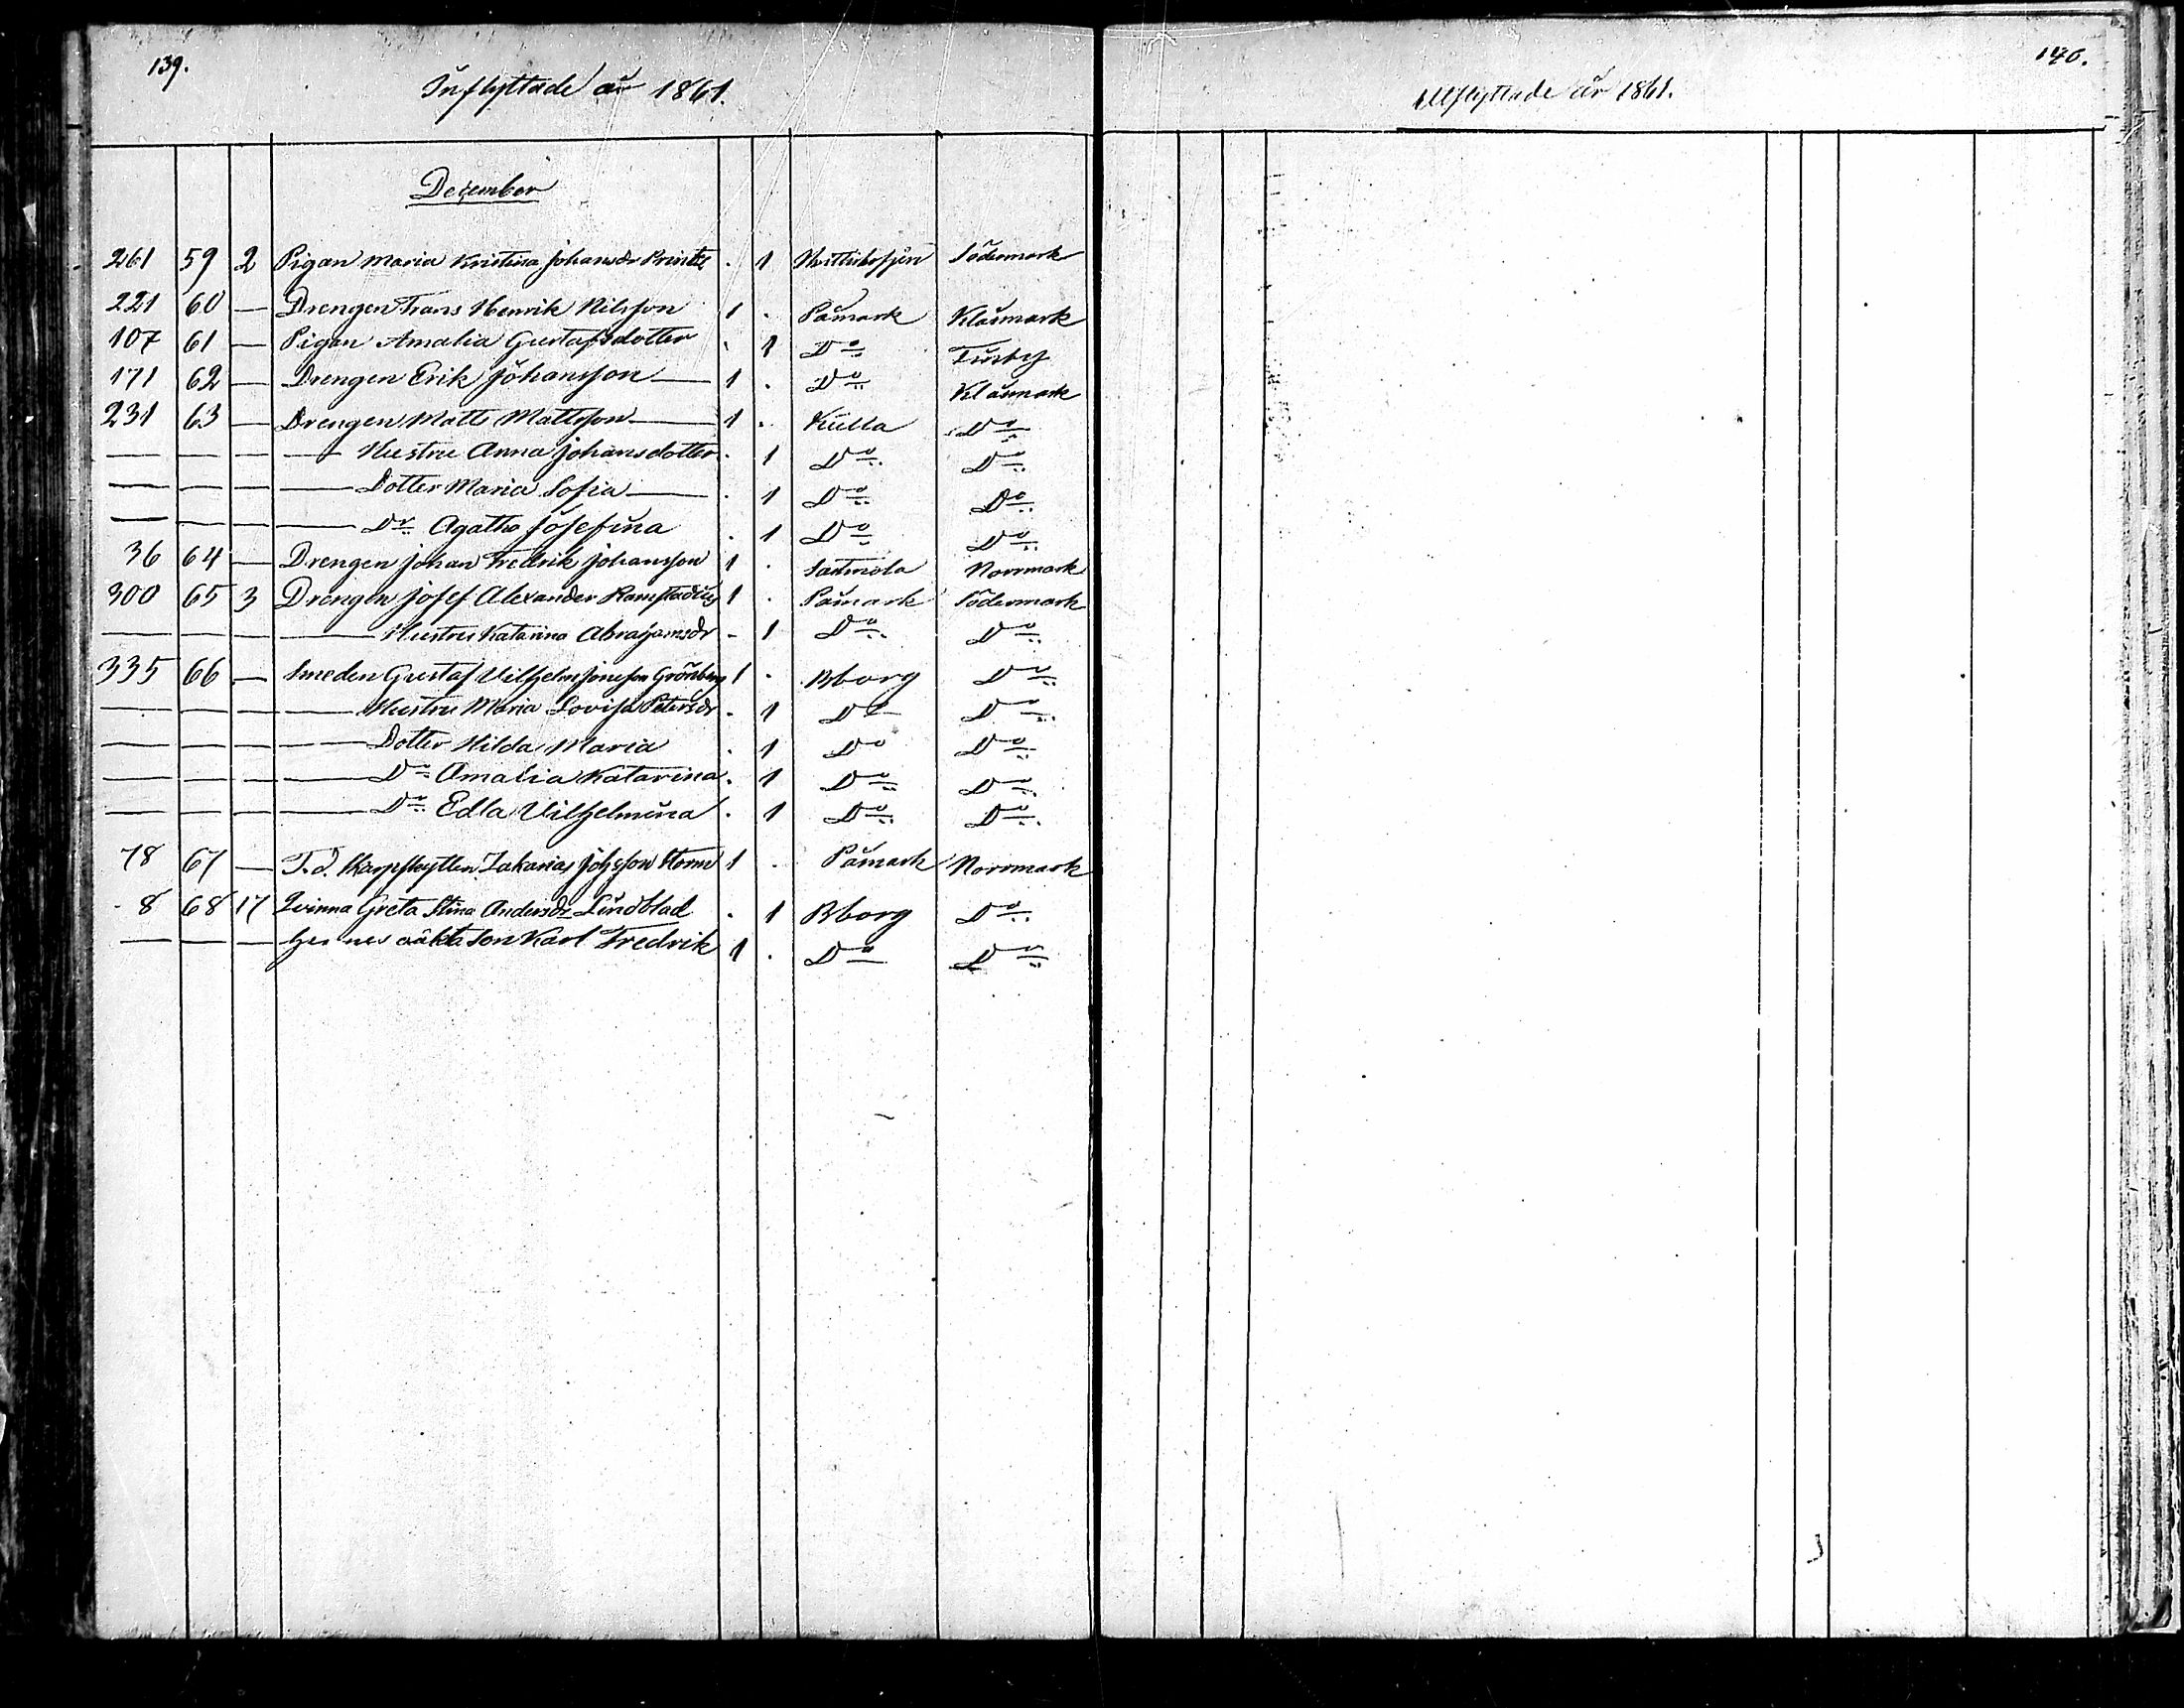 139.
Inflyttade år 1861.
December
261 59 2 Pigan Maria Kristina Johansdr Printz . 1 Södermark
221 60 — Drengen Frans Henrik Nilsson 1 . Påmark Klåsmark
107 61 — Pigan Amalia Gustafsdotter . 1 Do Tuorby
171 62 — Drengen Erik Johansson — 1 . Do Klåsmark
231 63 — Drengen Matts Mattsson — 1 . Kulla Do
— — — — Hustru Anna Johansdotter . 1 Do Do
— — — — Dotter Maria Sofia — . 1 Do Do
— — — — Dr Agatha Josefina . 1 Do Do
36 64 — Drengen Johan Fredrik Johansson 1 . Sastmola Norrmark
300 65 3 Drengen Josef Alexander Ramstadius 1 . Påmark Södermark
— — — — Hustru Katarina Abrahamsdr - 1 Do Do
335 66 — Smeden Gustaf Vilhelm Jonsson Grönberg 1 . Bborg Do
— — — — Hustru Maria Lovisa Petersdr . 1 Do Do
— — — — Dotter Hilda Maria . 1 Do Do
— — — — Do Amalia Katarina . 1 Do Do
— — — — Do Edla Vilhelmina . 1 Do Do
78 67 — F.d. Skarpskytten Zakarias Johsson Storm 1 . Påmark Norrmark
8 68 17 Qvinna Greta Stina Andersdr Lindblad . 1 Bborg Do
— — — hennes oäkta Son Karl Fredrik 1 . Do Do
140.
Utflyttade år 1861.